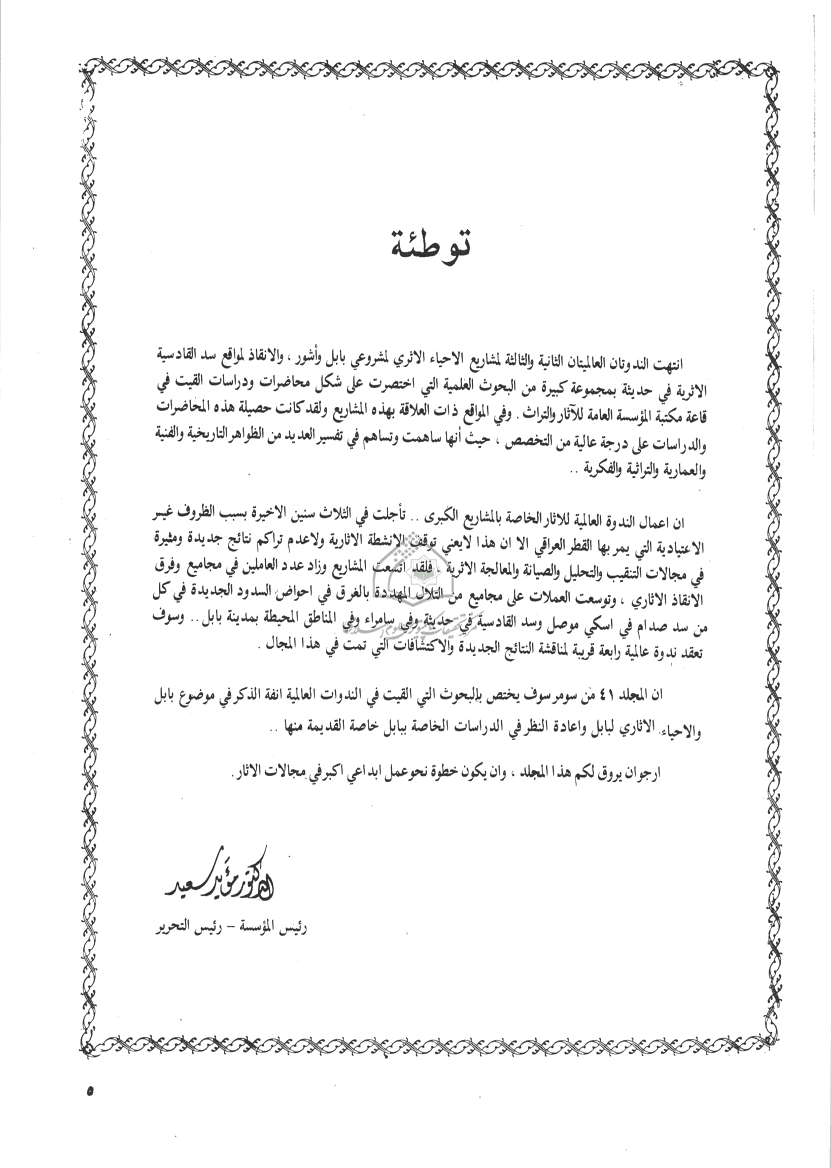 توطئة
انتهت الندوتان العالميتان الثانية والثالثة لمشاريع الاحياء الاثري لمشروعي بابل وأشور ، والانقاذ لمواقع سد القادسية
الاثرية في حديثة بمجموعة كبيرة من البحوث العلمية التي اختصرت على شكل محاضرات ودراسات القيت في
قاعة مكتبة المؤسسة العامة للآثار والتراث . وفي المواقع ذات العلاقة بهذه المشاريع ولقد كانت حصيلة هذه المحاضرات
والدراسات على درجة عالية من التخصص ، حيث أنها ساهمت وتساهم في تفسير العديد من الظواهر التاريخية والفنية
والعمارية والتراثية والفكرية ..
ان اعمال الندوة العالمية للاثار الخاصة بالمشاريع الكبرى .. تأجلت في الثلاث سنين الاخيرة بسبب الظروف غير
الاعتيادية التي يمر بها القطر العراقي الا ان هذا لايعني توقف الانشطة الاثارية ولاعدم تراكم نتائج جديدة ومثيرة
في مجالات التنقيب والتحليل والصيانة والمعالجة الاثرية ، فلقد اتسعت المشاريع وزاد عدد العاملين في مجاميع وفرق
الانقاذ الاثاري ، وتوسعت العملات على مجاميع من التلال المهددة بالغرق في احواض السدود الجديدة في كل
من سد صدام في اسكي موصل وسد القادسية في حديثة وفي سامراء وفي المناطق المحيطة بمدينة بابل .. وسوف
تعقد ندوة عالمية رابعة قريبة لمناقشة النتائج الجديدة والاكتشافات التي تمت في هذا المجال .
ان المجلد ٤١ من سومر سوف يختص بالبحوث التي القيت في الندوات العالمية انفة الذكر في موضوع بابل
والاحياء الاثاري لبابل واعادة النظر في الدراسات الخاصة ببابل خاصة القديمة منها ..
ارجو ان يروق لكم هذا المجلد ، وان يكون خطوة نحو عمل ابداعي اكبر في مجالات الاثار .
الدكتور مؤيد سعيد
رئيس المؤسسة – رئيس التحرير
٥